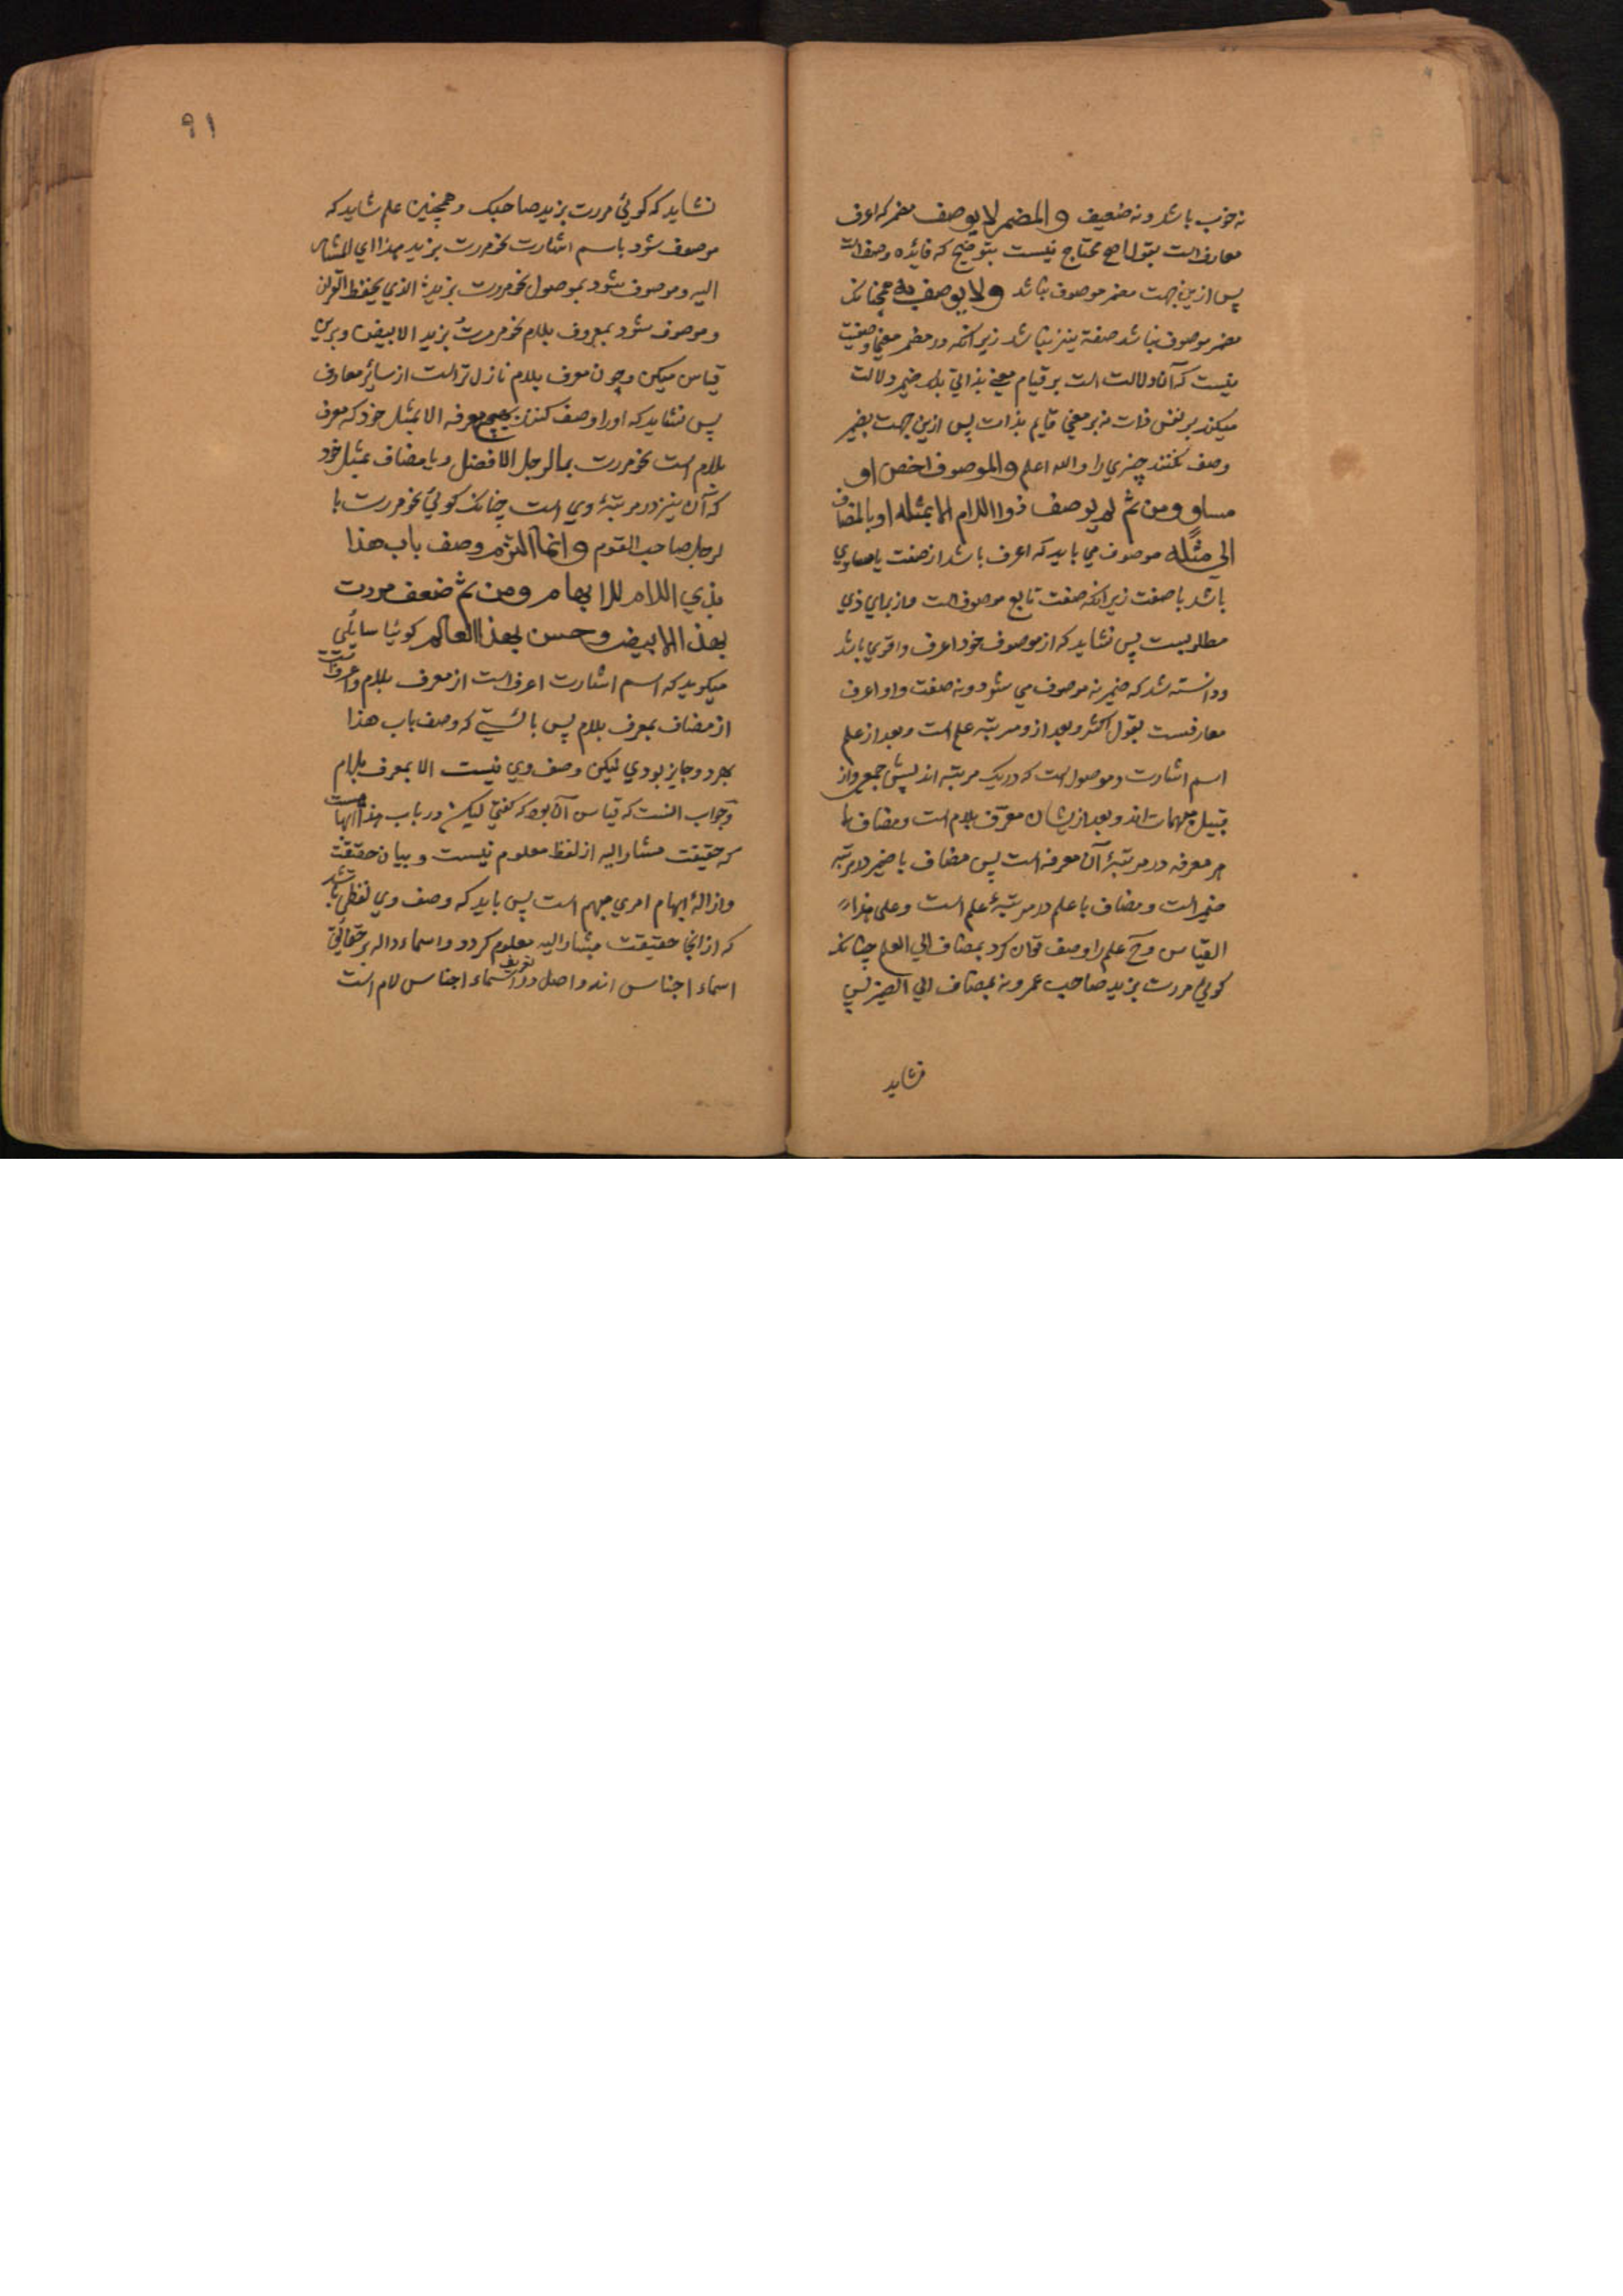 نه خوب باشد و نه ضعیف والمضمر لا یوصف مضمر که اعرف
معارفست بقول اصح محتاج نیست بتوضیح که فائده وصف است
پس ازین جهت مضمر موصوف نباشد ولا یوصف به همچنانکه
مضمر موصوف نباشد صفة نیز نباشد زیرانکه در مضمر معنی وصفیت
نیست که آن دلالت است بر قیام معنی بذاتی بلکه ضمیر دلالت
میکند بر نفس ذات نه بر معنی قایم بذات پس ازین جهت بضمیر
وصف نکنند چیزی را والله اعلم والموصوف اخص او
مساو ومن ثم لم یوصف ذو اللام الا بمثله او بالمضاف
الی مثله موصوف می باید که اعرف باشد از صفت یا مساوی
باشد با صفت زیرانکه صفت تابع موصوفست و از برای ذی
مطلوبست پس نشاید که از موصوف خود اعرف و اقوی باشد
و دانسته شد که ضمیر نه موصوف می شود و نه صفت و او اعرف
معارفست بقول اکثر و بعد ازو مرتبه علم است و بعد از علم
اسم اشارت و موصول است که در یک مرتبه اند پیش جمعی و از
قبیل مبهمات اند و بعد ازیشان معرف بلام است و مضاف با
هر معرفه در مرتبهٔ آن معرفه است پس مضاف با ضمیر در مرتبه
ضمیر است و مضاف با علم در مرتبهٔ علم است وعلی هذا
القیاس وح علم را وصف توان کرد بمضاف الی العلم چنانکه
کوئی مررت بزید صاحب عمرو نه بمضاف الی الضمیر پس
نشاید
۹۱
نشاید که کوئی مررت بزید صاحبک و همچنین علم شاید که
موصوف شود باسم اشارت نحو مررت بزید هذا ای المشار
الیه و موصوف شود بموصول نحو مررت بزید الذی یحفظ القرآن
و موصوف شود بمعروف بلام نحو مررت بزید الابیض و برین
قیاس میکن و چون معرف بلام نازل تر است از سائر معارف
پس نشاید که او را وصف کنند بهیچ معرفه الا بمثل خود که معرف
بلام است نحو مررت بالرجل الافضل و یا مضاف بمثل خود
که آن نیز در مرتبهٔ وی است چنانکه کوئی نحو مررت با
لرجل صاحب القوم وانما التزم وصف باب هذا
بذی اللام للابهام ومن ثم ضعف مررت
بهذا الابیض وحسن بهذا العالم کوئیا سائلی
میکوید که اسم اشارت اعرف است از معرف بلام و اعرفست
از مضاف بمعرف بلام پس بایستی که وصف باب هذا
بهر دو جایز بودی لیکن وصف وی نیست الا بمعرف بلام
وجواب انست که قیاس آن بود که کفتی لیکن در باب هذا ابهامست
که حقیقت مشار الیه از لفظ معلوم نیست و بیان حقیقت
و ازالهٔ ابهام امری مبهم است پس باید که وصف وی لفظی باشد
که ازانجا حقیقت مشار الیه معلوم کردد و اسماء داله بر حقائق
اسماء اجناس اند و اصل در تعریف اسماء اجناس لام است